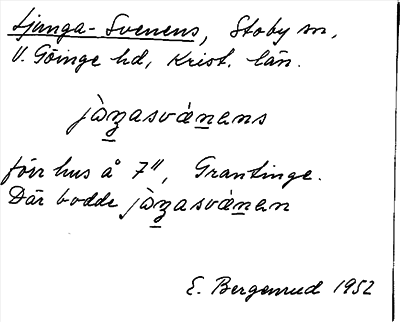 Ljunga-Svenens, Stoby sn,
V. Göinge hd, Krist. län.
jàŋasvánens
förr hus å 7¹¹, Grantinge.
Där bodde jàŋasvánen
E. Bergenrud 1952